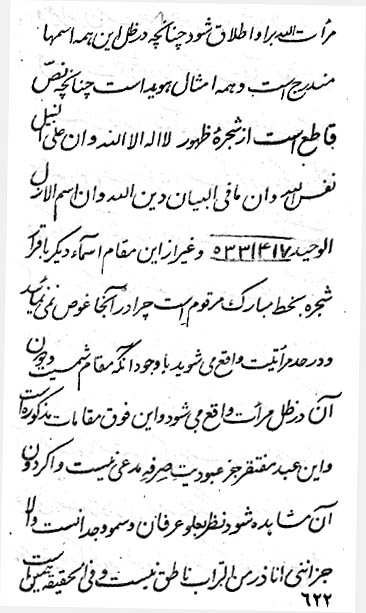 مرأت الله براو اطلاق شود چنانچه در ظل این همه اسمها
مندرج است و همه امثال هویداست چنانچه نصّ
قاطع است از شجرهٔ ظهور لااله الا الله وان علی النبیل
نفس الله وان مافی البیان دین الله وان اسم الازل
الوحید ۵۳۳۱۴۱۷ وغیر از این مقام اسمآء دیکر باقرار
شجره بخط مبارک مرقوم است چرا در آنجا غوص نمی نمائید
ودر حد مرأتیت واقع می شوید با وجود آنکه مقام شمسیت و چون
آن در ظل مرأت واقع می شود واین فوق مقامات مذکوره است
واین عبد مفتقر جز عبودیت صرفه مدعی نیست واکر دون
آن مشاهده شود نظر بعلو عرفان وسمو وجدانست والا
جز اننی انا ذر من التراب ناطق نیست وفی الحقیقه همین است
۶۲۲